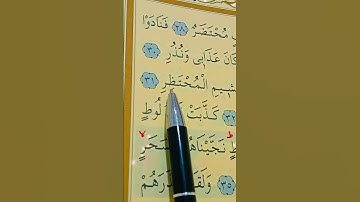 مُحْتَضَرٌ ﴿٢٨﴾ فَنَادَوْا
كَانَ عَذَابِي وَنُذُرِ ﴿٣٠﴾
الْمُحْتَظِرِ ﴿٣١﴾
﴿٣٢﴾ كَذَّبَتْ لُوطٍ
نَجَّيْنَاهُ سَحَرٍ
﴿٣٥﴾